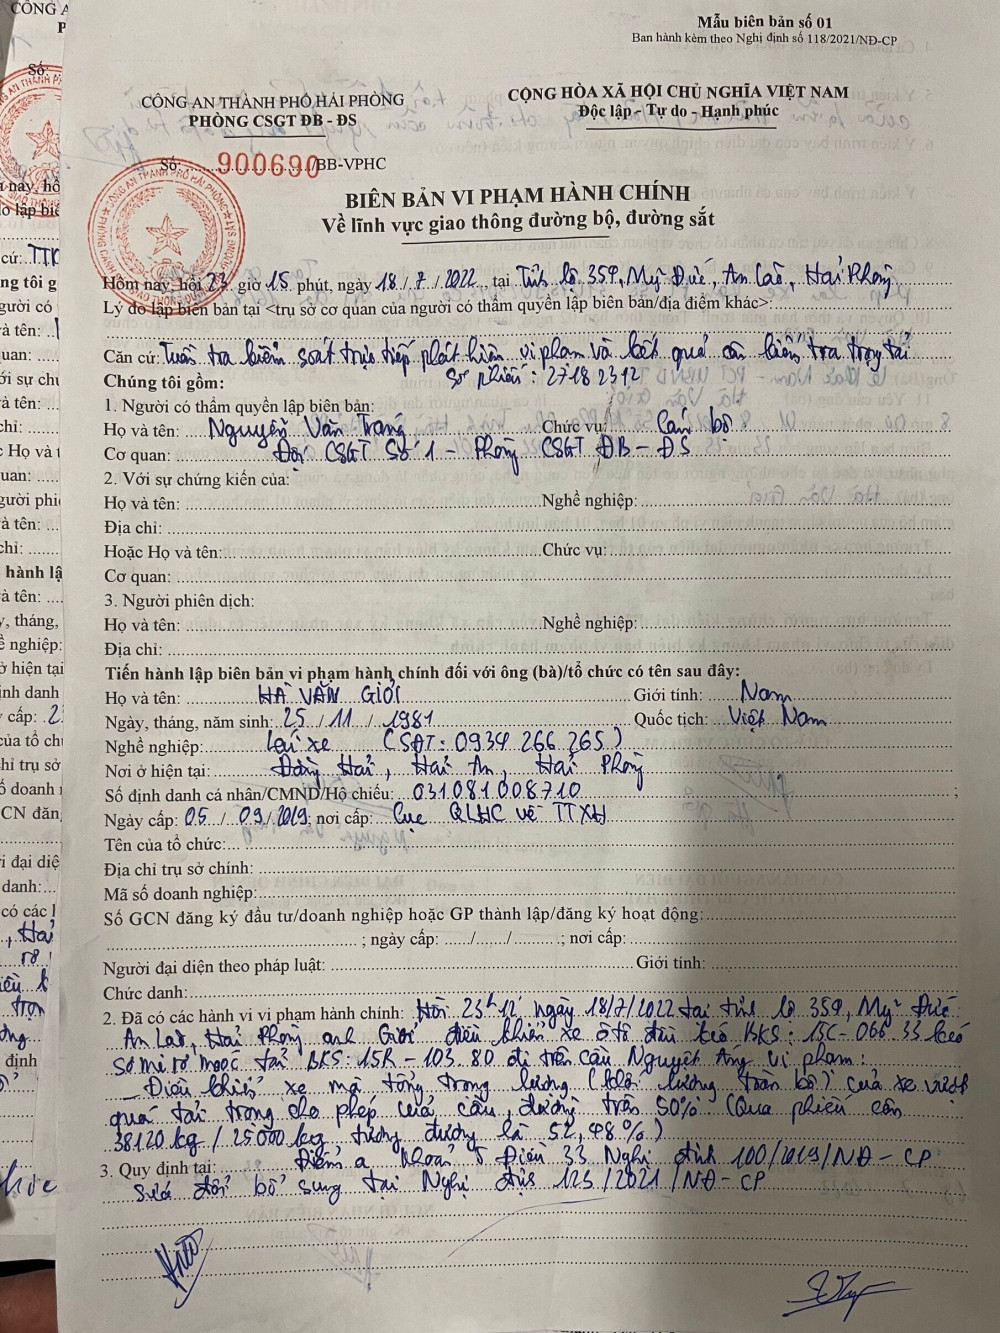 CÔNG A
P
Số:
Mẫu biên bản số 01
Ban hành kèm theo Nghị định số 118/2021/NĐ-CP
CÔNG AN THÀNH PHỐ HẢI PHÒNG
PHÒNG CSGT ĐB - ĐS
CỘNG HÒA XÃ HỘI CHỦ NGHĨA VIỆT NAM
Độc lập - Tự do - Hạnh phúc
Số: 900690/BB-VPHC
BIÊN BẢN VI PHẠM HÀNH CHÍNH
Về lĩnh vực giao thông đường bộ, đường sắt
Hôm nay, hồi 23 giờ 15 phút, ngày 18/7/2022, tại Tỉnh lộ 359, Mỹ Đức, An Lão, Hải Phòng
Lý do lập biên bản tại <trụ sở cơ quan của người có thẩm quyền lập biên bản/địa điểm khác>:
Căn cứ: Tuần tra kiểm soát trực tiếp phát hiện vi phạm và kết quả cân kiểm tra trọng tải
Số phiếu: 27182312
Chúng tôi gồm:
1. Người có thẩm quyền lập biên bản:
Họ và tên: Nguyễn Văn Trang Chức vụ: Cán bộ
Cơ quan: Đội CSGT Số 1 - Phòng CSGT ĐB - ĐS
2. Với sự chứng kiến của:
Họ và tên: Nghề nghiệp:
Địa chỉ:
Hoặc Họ và tên: Chức vụ:
Cơ quan:
3. Người phiên dịch:
Họ và tên: Nghề nghiệp:
Địa chỉ:
Tiến hành lập biên bản vi phạm hành chính đối với ông (bà)/tổ chức có tên sau đây:
Họ và tên: HÀ VĂN GIỎI Giới tính: Nam
Ngày, tháng, năm sinh: 25/11/1981 Quốc tịch: Việt Nam
Nghề nghiệp: Lái xe (SĐT: 0934 266 265)
Nơi ở hiện tại: Đông Hải, Hải An, Hải Phòng
Số định danh cá nhân/CMND/Hộ chiếu: 031081008710;
Ngày cấp: 05/09/2019; nơi cấp: Cục QLHC về TTXH
Tên của tổ chức:
Địa chỉ trụ sở chính:
Mã số doanh nghiệp:
Số GCN đăng ký đầu tư/doanh nghiệp hoặc GP thành lập/đăng ký hoạt động:
; ngày cấp: ...../....../..........; nơi cấp:
Người đại diện theo pháp luật: Giới tính:
Chức danh:
2. Đã có các hành vi vi phạm hành chính: Hồi 23h12 ngày 18/7/2022 tại tỉnh lộ 359, Mỹ Đức
An Lão, Hải Phòng anh Giỏi điều khiển xe ô tô đầu kéo BKS: 15C-066.33 kéo
sơ mi rơ moóc tải BKS: 15R-103.80 đi trên cầu Nguyệt Áng vi phạm:
- Điều khiển xe mà tổng trọng lượng (khối lượng toàn bộ) của xe vượt
quá tải trọng cho phép của cầu, đường trên 50% (Qua phiếu cân
38120 kg / 25000 kg tương đương là 52,48%)
3. Quy định tại: Điểm a Khoản 5 Điều 33 Nghị định 100/2019/NĐ-CP
Sửa đổi bổ sung tại Nghị định 123/2021/NĐ-CP